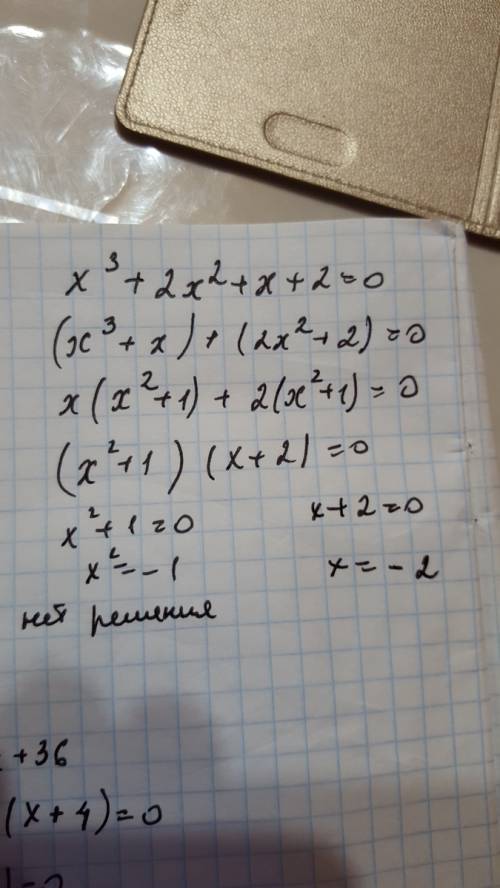 x³ + 2x² + x + 2 = 0
(x³ + x) + (2x² + 2) = 0
x(x² + 1) + 2(x² + 1) = 0
(x² + 1) (x + 2) = 0
x² + 1 = 0 x + 2 = 0
x² = -1 x = -2
нет решения
+ 36
(x + 4) = 0